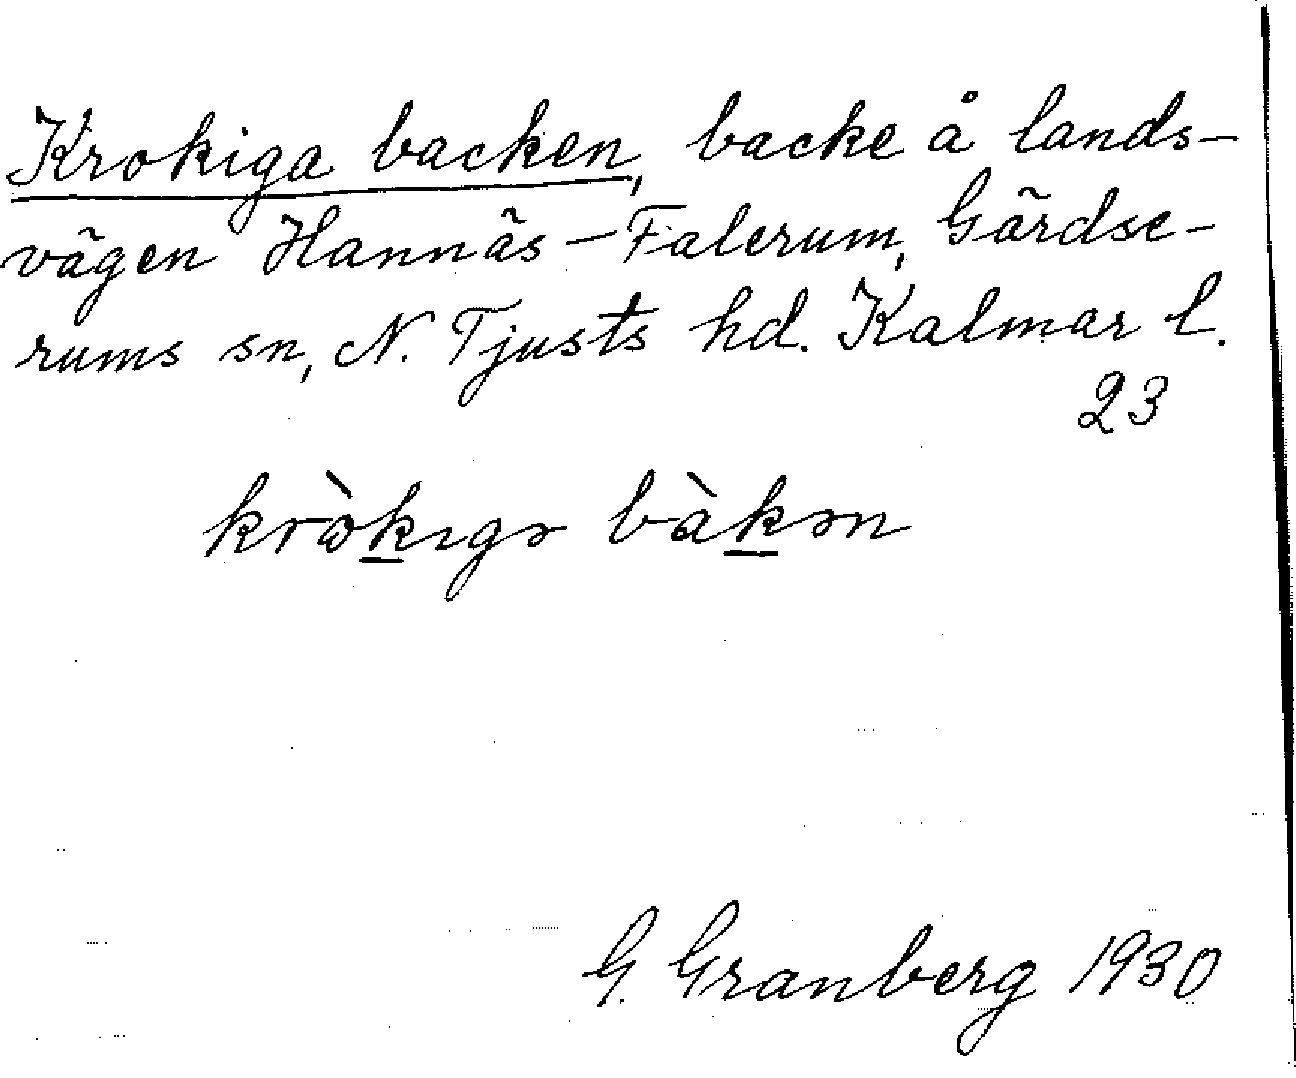 Krokiga backen, backe å lands-
vägen Hannäs - Falerum, Gärdse-
rums sn, N. Tjusts hd. Kalmar l.
23
krò̱kıgə bàḵən
G. Granberg 1930